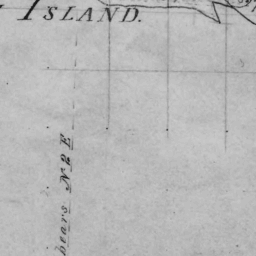 ISLAND.
bears N2E